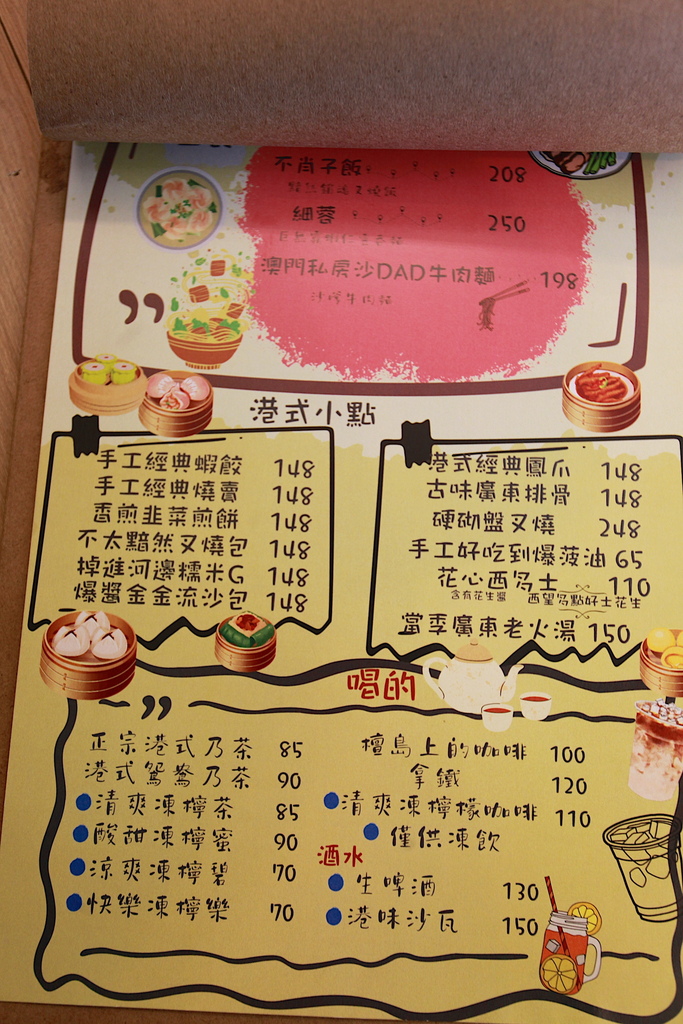 不肖子飯 208
細蓉 250
澳門私房沙DAD牛肉麵 198
沙嗲牛肉麵
港式小點
手工經典蝦餃 148
手工經典燒賣 148
香煎韭菜煎餅 148
不太黯然叉燒包 148
掉進河邊糯米G 148
爆醬金金流沙包 148
港式經典鳳爪 148
古味廣東排骨 148
硬砌盤叉燒 248
手工好吃到爆菠油 65
花心西多士 110
含有花生醬 西望多點好士花生
當季廣東老火湯 150
喝的
正宗港式乃茶 85
港式鴛鴦乃茶 90
清爽凍檸茶 85
酸甜凍檸蜜 90
涼爽凍檸碧 70
快樂凍檸樂 70
檀島上的咖啡 100
拿鐵 120
清爽凍檸檬咖啡 110
僅供凍飲
酒水
生啤酒 130
港味沙瓦 150